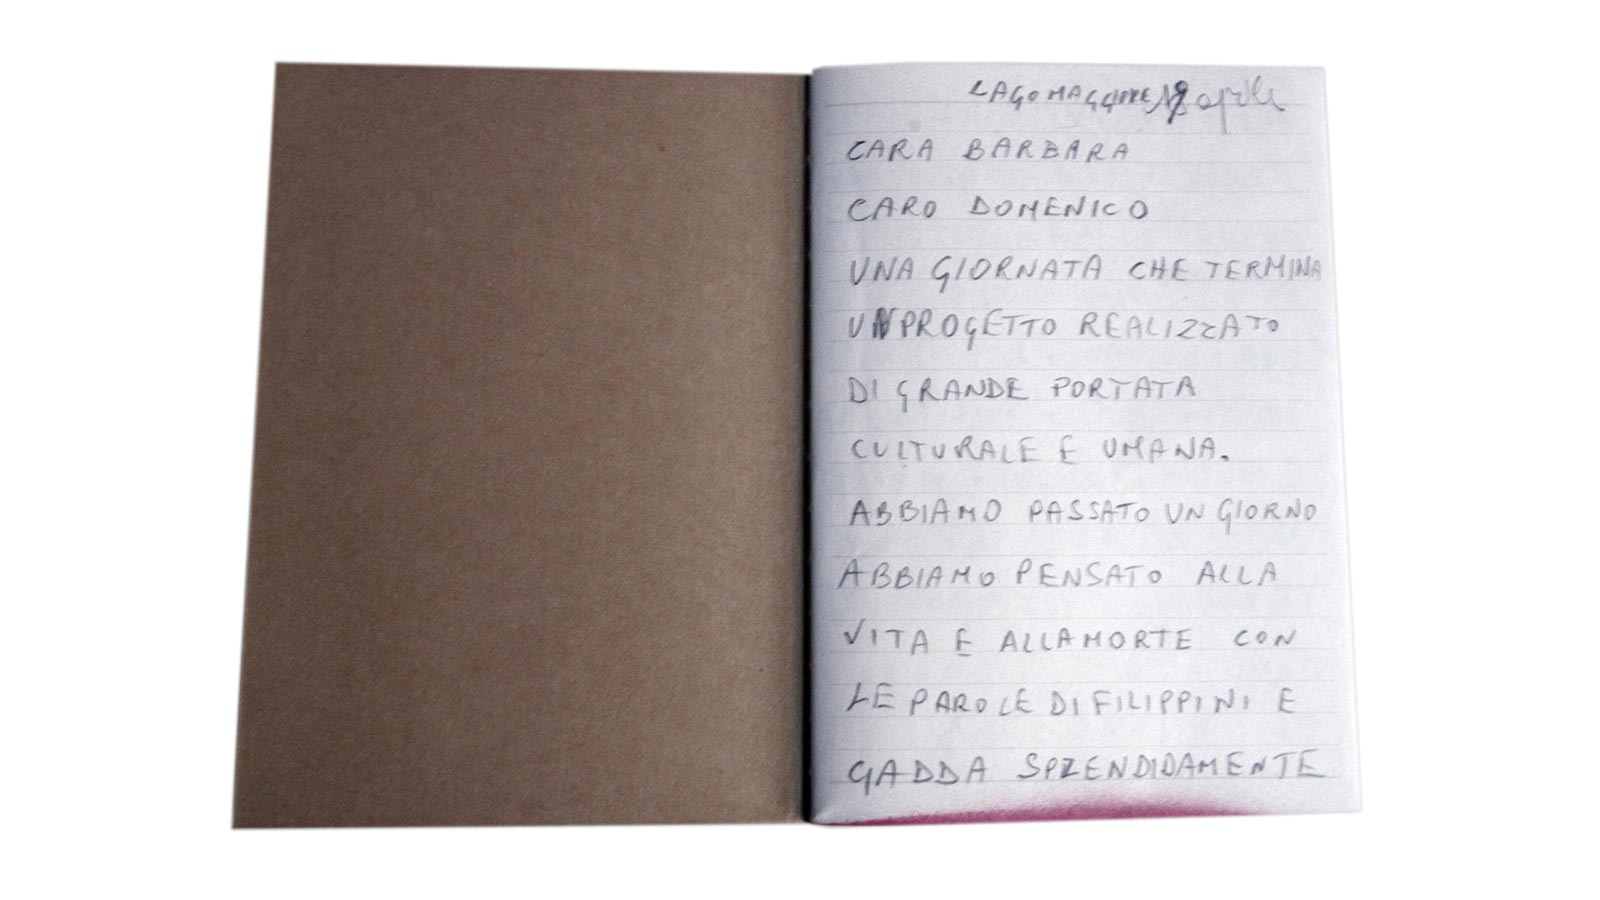 LAGO MAGGIORE aprile
CARA BARBARA
CARO DOMENICO
UNA GIORNATA CHE TERMINA
UN PROGETTO REALIZZATO
DI GRANDE PORTATA
CULTURALE E UMANA.
ABBIAMO PASSATO UN GIORNO
ABBIAMO PENSATO ALLA
VITA E ALLA MORTE CON
LE PAROLE DI FILIPPINI E
GADDA SPLENDIDAMENTE